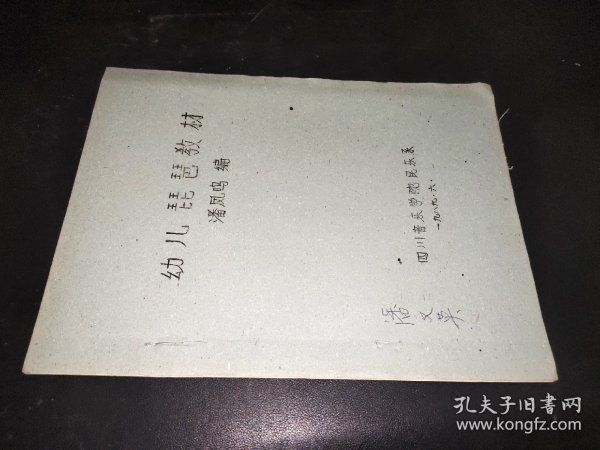 幼儿琵琶教材
潘凤鸣 编
四川音乐学院民乐系
一九八九.六.
潘文
孔夫子旧书网
www.kongfz.com